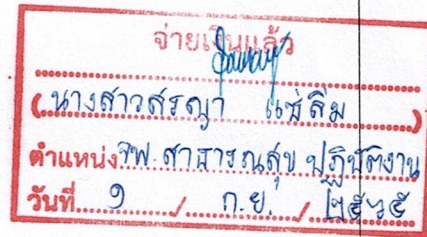 จ่ายเงินแล้ว
(นางสาวสรญา แซ่ลิ่ม)
ตำแหน่ง จพ.สาธารณสุขปฏิบัติงาน
วันที่ ๑ / ก.ย. / ๒๕๖๕